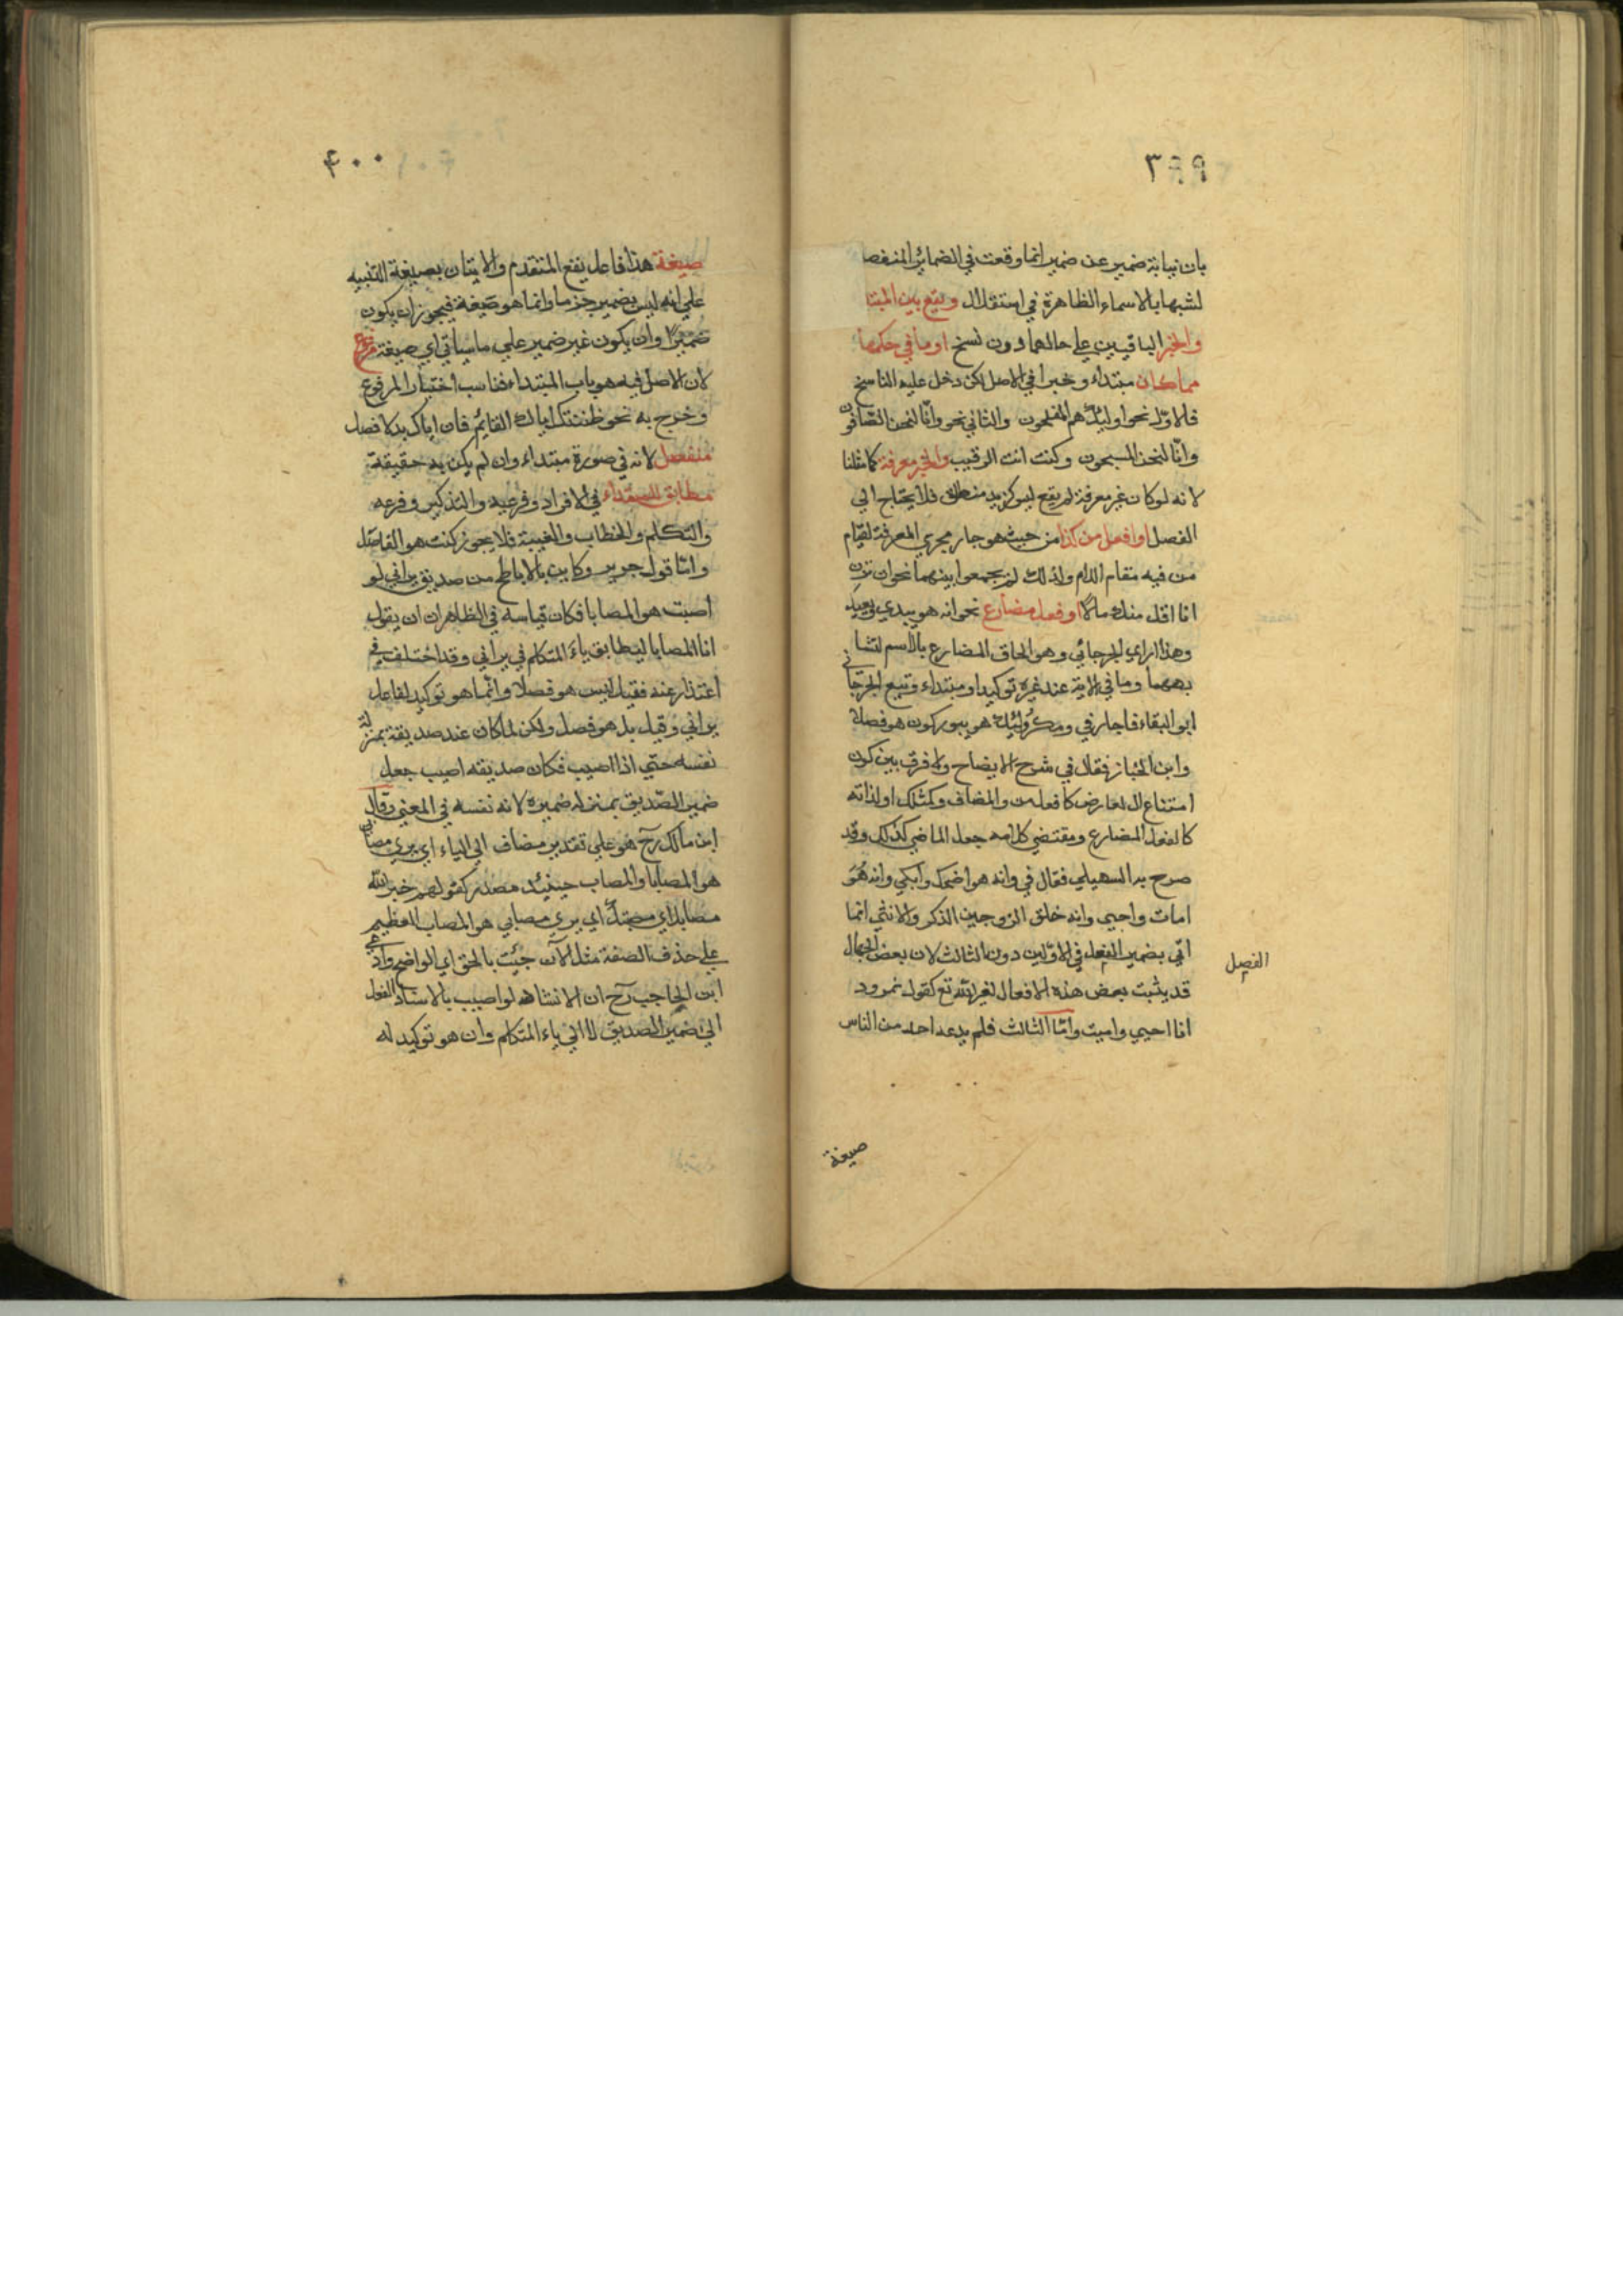 ٣٩٩
بان نيابة ضمير عن ضمير انما وقعت في الضمائر المنفصلة
لشبهها بالاسماء الظاهرة في استقلال ويقع بين المبتدا
والخبر الباقيين علي حالهما دون نسخ او ما في حكمهما
مما كان مبتداء وخبرا في الاصل لكن دخل عليه الناسخ
فالاوّل نحو اوليك هم المفلحون والثاني نحو وانّا لنحن الصّافون
وانّا لنحن المسبحون وكنت انت الرقيب والخبر معرفة كما مثلنا
لانه لو كان غير معرفة لم يقع لبس كزيد منطلق فلا يحتاج الي
الفصل او افعل من كذا من حيث هو جار مجري المعرفة لقيام
من فيه مقام اللام ولذلك لم يجمعوا بينهما نحو ان ترن
انا اقل منك مالا او فعل مضارع نحو انه هو يبدي ويعيد
وهذا راي الجرجاني وهو الحاق المضارع بالاسم لتشا
بههما وما في الاية عند غيره توكيد او مبتداء وتبع الجرجاني
ابو البقاء فاجاز في ومكر اوليك هو يبور كون هو فصلا
وابن الخباز فقال في شرح الايضاح ولا فرق بين كون
امتناع ال لعارض كافعل من والمضاف وكمثلك او لذاته
كالفعل المضارع ومقتضي كلامه جعل الماضي كذلك وقد
صرح به السهيلي فقال في وانه هو اضحك وابكي وانه هو
امات واحيي وانه خلق الزوجين الذكر والانثي انما
اتي بضمير الفعل في الاوّلين دون الثالث لان بعض الجهال
الفصل
قد يثبت بعض هذه الافعال لغير الله تع كقول نمرود
انا احيي واميت وامّا الثالث فلم يدعه احد من الناس
صيغة
٤٠٠
صيغة هذا فاعل يقع المتقدم والاتيان بصيغة التنبيه
علي انه ليس بضمير جزما وانما هو صيغة فيجوز ان يكون
ضميرا وان يكون غير ضمير علي ما سياتي اي صيغة مرفوع
لان الاصل فيه هو باب المبتداء فناسب اختيار المرفوع
وخرج به نحو ظننتك اياك القائم فان اياك بدلا فصل
منفصل لانه في صورة مبتداء وان لم يكن به حقيقة
مطابق للمبتداء في الافراد وفرعيه والتذكير وفرعه
والتكلم والخطاب والغيبة فلا يجوز كنت هو الفاضل
وامّا قول جرير وكاين بالاباطح من صديق يراني لو
اصبت هو المصابا فكان قياسه في الظاهر ان يقول
انا المصابا ليطابق ياء المتكلم في يراني وقد اختلف في
اعتذار عنه فقيل ليس هو فصلا وانّما هو توكيد لفاعل
يراني وقيل بل هو فصل ولكن لما كان عند صديقه بمنزلة
نفسه حتي اذا اصيب فكان صديقه اصيب جعل
ضمير الصّديق بمنزله ضميره لانه نفسه في المعني وقال
ابن مالك رح هو علي تقدير مضاف الي الياء اي يري مصابي
هو المصابا والمصاب حينئذ مصدر كقولهم جبر الله
مصابك اي مصيبتك اي يري مصابي هو المصاب العظيم
علي حذف الصفة مثل الآن جيت بالحق اي الواضح وادعي
ابن الحاجب رح ان الانشاده لو اصيب بالاسناد الفعل
الي ضمير الصديق لا الي ياء المتكلم وان هو توكيد له